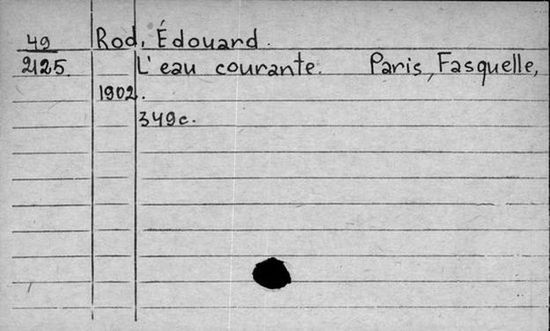 49 Rod, Édouard.
2125. L'eau courante. Paris, Fasquelle,
1902.
349c.